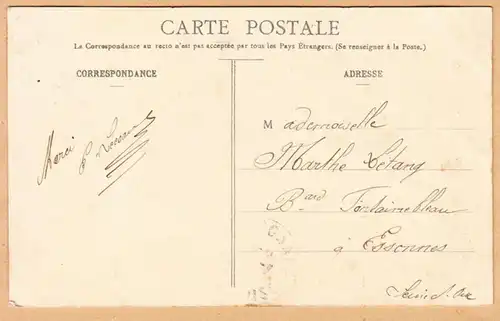 CARTE POSTALE
La Correspondance au recto n'est pas acceptée par tous les Pays Étrangers. (Se renseigner à la Poste.)
CORRESPONDANCE
Merci
ADRESSE
Mademoiselle
Marthe Létang
Bard Fontainebleau
à Essonnes
Seine & Oise